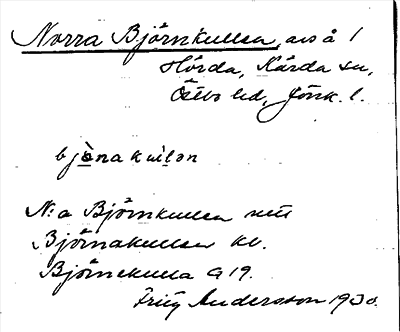 Norra Björnkullen, avs å 1
Hörda, Kärda sn,
Östbo hd, Jönk. l.
bjònakulən
N:a Björnkullen
Björnakullen
Björnekulla G 19.
Andersson 1930.